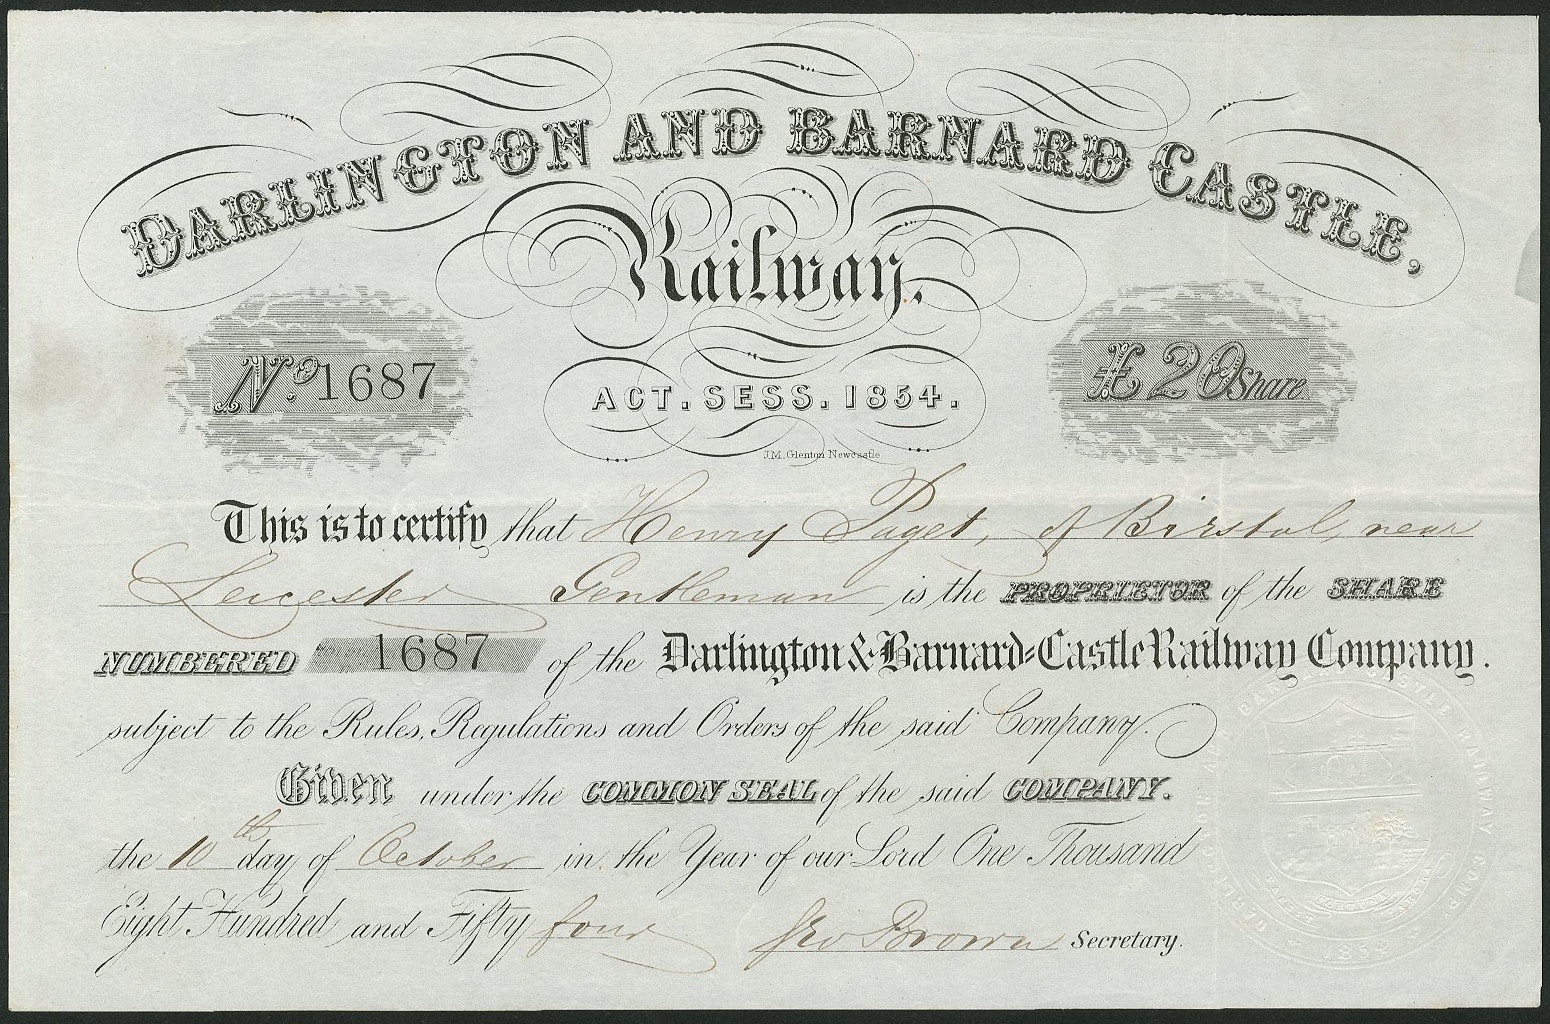 DARLINGTON AND BARNARD CASTLE,
Railway.
No. 1687
£20 Share
ACT. SESS. 1854.
J.M. Glenton Newcastle
This is to certify that Henry Paget, of Birstal, near
Leicester Gentleman is the PROPRIETOR of the SHARE
NUMBERED 1687 of the Darlington & Barnard=Castle Railway Company.
subject to the Rules, Regulations and Orders of the said Company.
Given under the COMMON SEAL of the said COMPANY.
the 10th day of October in the Year of our Lord One Thousand
Eight Hundred and Fifty four Geo Brown Secretary.
DARLINGTON AND BARNARD CASTLE RAILWAY COMP
1854